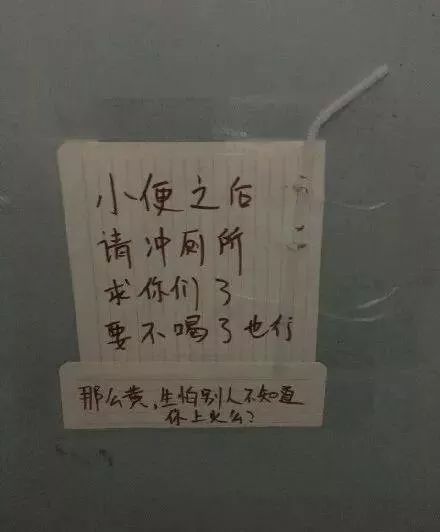 小便之后
请冲厕所
求你们了
要不喝了也行
那么黄,生怕别人不知道
你上火么?